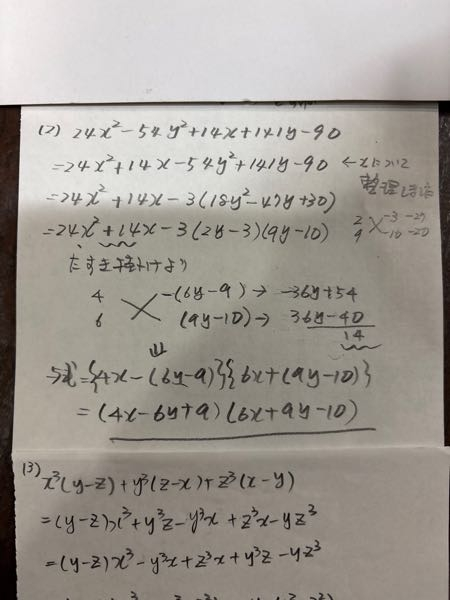 (2) 24x²-54y²+14x+141y-90
=24x²+14x-54y²+141y-90 ←xについて
整理した
=24x²+14x-3(18y²-47y+30)
=24x²+14x-3(2y-3)(9y-10) 2 -3 -27
9 -10 -20
たすき掛けより
4 -(6y-9)→ -36y+54
6 (9y-10)→ 36y-40
14
⇓
与式={4x-(6y-9)}{6x+(9y-10)}
=(4x-6y+9)(6x+9y-10)
(3)
x³(y-z)+y³(z-x)+z³(x-y)
=(y-z)x³+y³z-y³x+z³x-yz³
=(y-z)x³-y³x+z³x+y³z-yz³